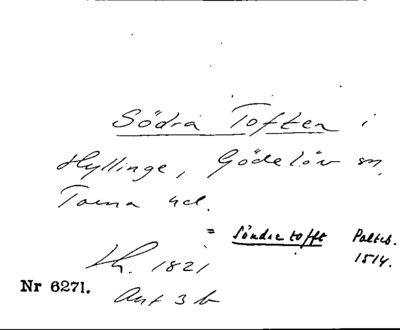 Södra Toften i
Hyllinge, Gödelöv sn,
Torna hd.
= Söndretofft Palteb. 1514.
Lh. 1821
Ant 3 b
Nr 6271.